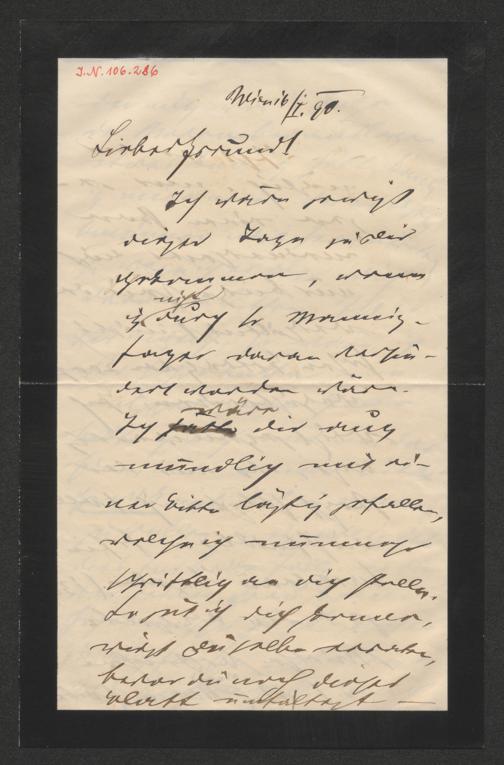 I.N. 106.286
Wien 16/I. 90.
Lieber Freund!
Ich wäre gewiß
dieser Tage zu Dir
gekommen, wenn
ich nicht durch so Mannig-
faches daran verhin-
dert worden wäre.
Ich wäre dir auch
mündlich mit ei-
ner Bitte lästig gefallen,
welche ich nunmehr
schriftlich an dich stelle.
So gut ich dich kenne,
wirst du selbe erraten,
bevor du noch dieses
Blatt entfaltest —